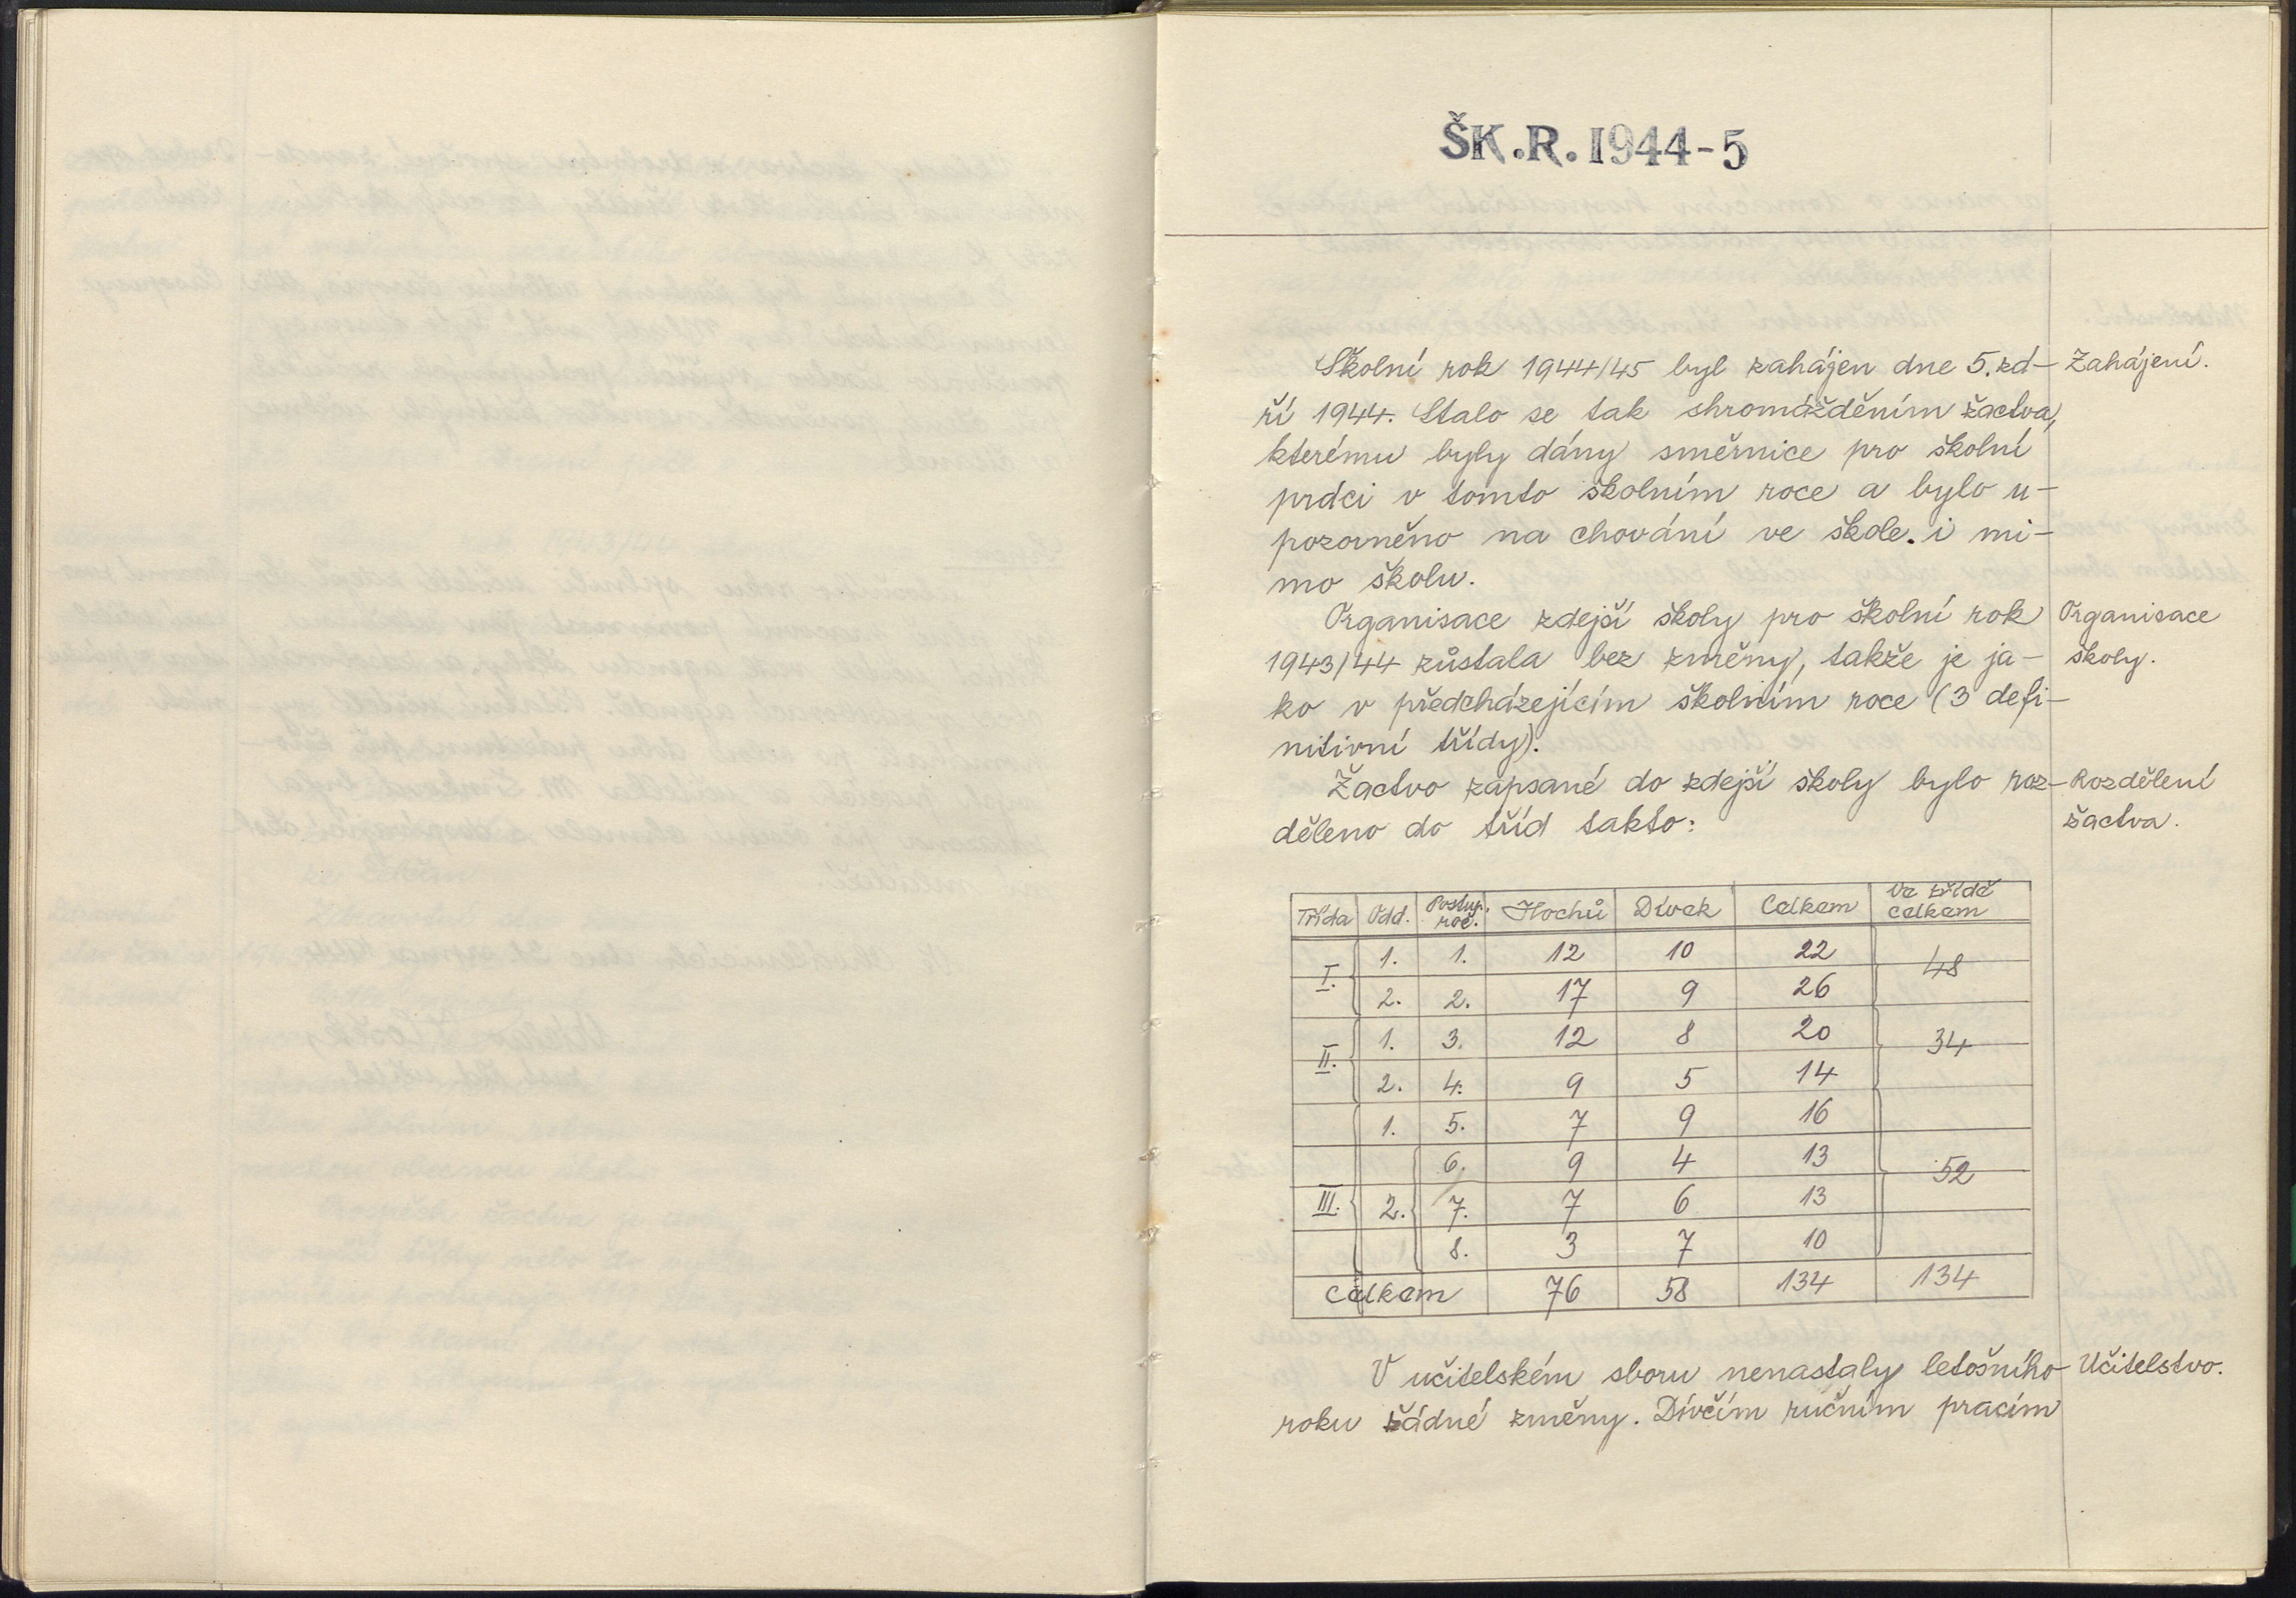 ŠK.R. 1944-5
Školní rok 1944/45 byl zahájen dne 5. zá-
Zahájení.
ří 1944. Stalo se tak shromážděním žactva,
kterému byly dány směrnice pro školní
práci v tomto školním roce a bylo u-
pozorněno na chování ve škole. i mi-
mo školu.
Organisace zdejší školy pro školní rok
Organisace
1943/44 zůstala bez změny, takže je ja-
školy.
ko v předcházejícím školním roce (3 defi-
nitivní třídy).
Žactvo zapsané do zdejší školy bylo roz-
Rozdělení
děleno do tříd takto:
žactva.
Třída Odd. Postup. roč. Hochů Dívek Celkem Ve třídě celkem
I. 1. 1. 12 10 22 48
2. 2. 17 9 26
II. 1. 3. 12 8 20 34
2. 4. 9 5 14
1. 5. 7 9 16
6. 9 4 13 52
III. 2. 7. 7 6 13
8. 3 7 10
Celkem 76 58 134 134
V učitelském sboru nenastaly letošního
Učitelstvo.
roku žádné změny. Dívčím ručním pracím